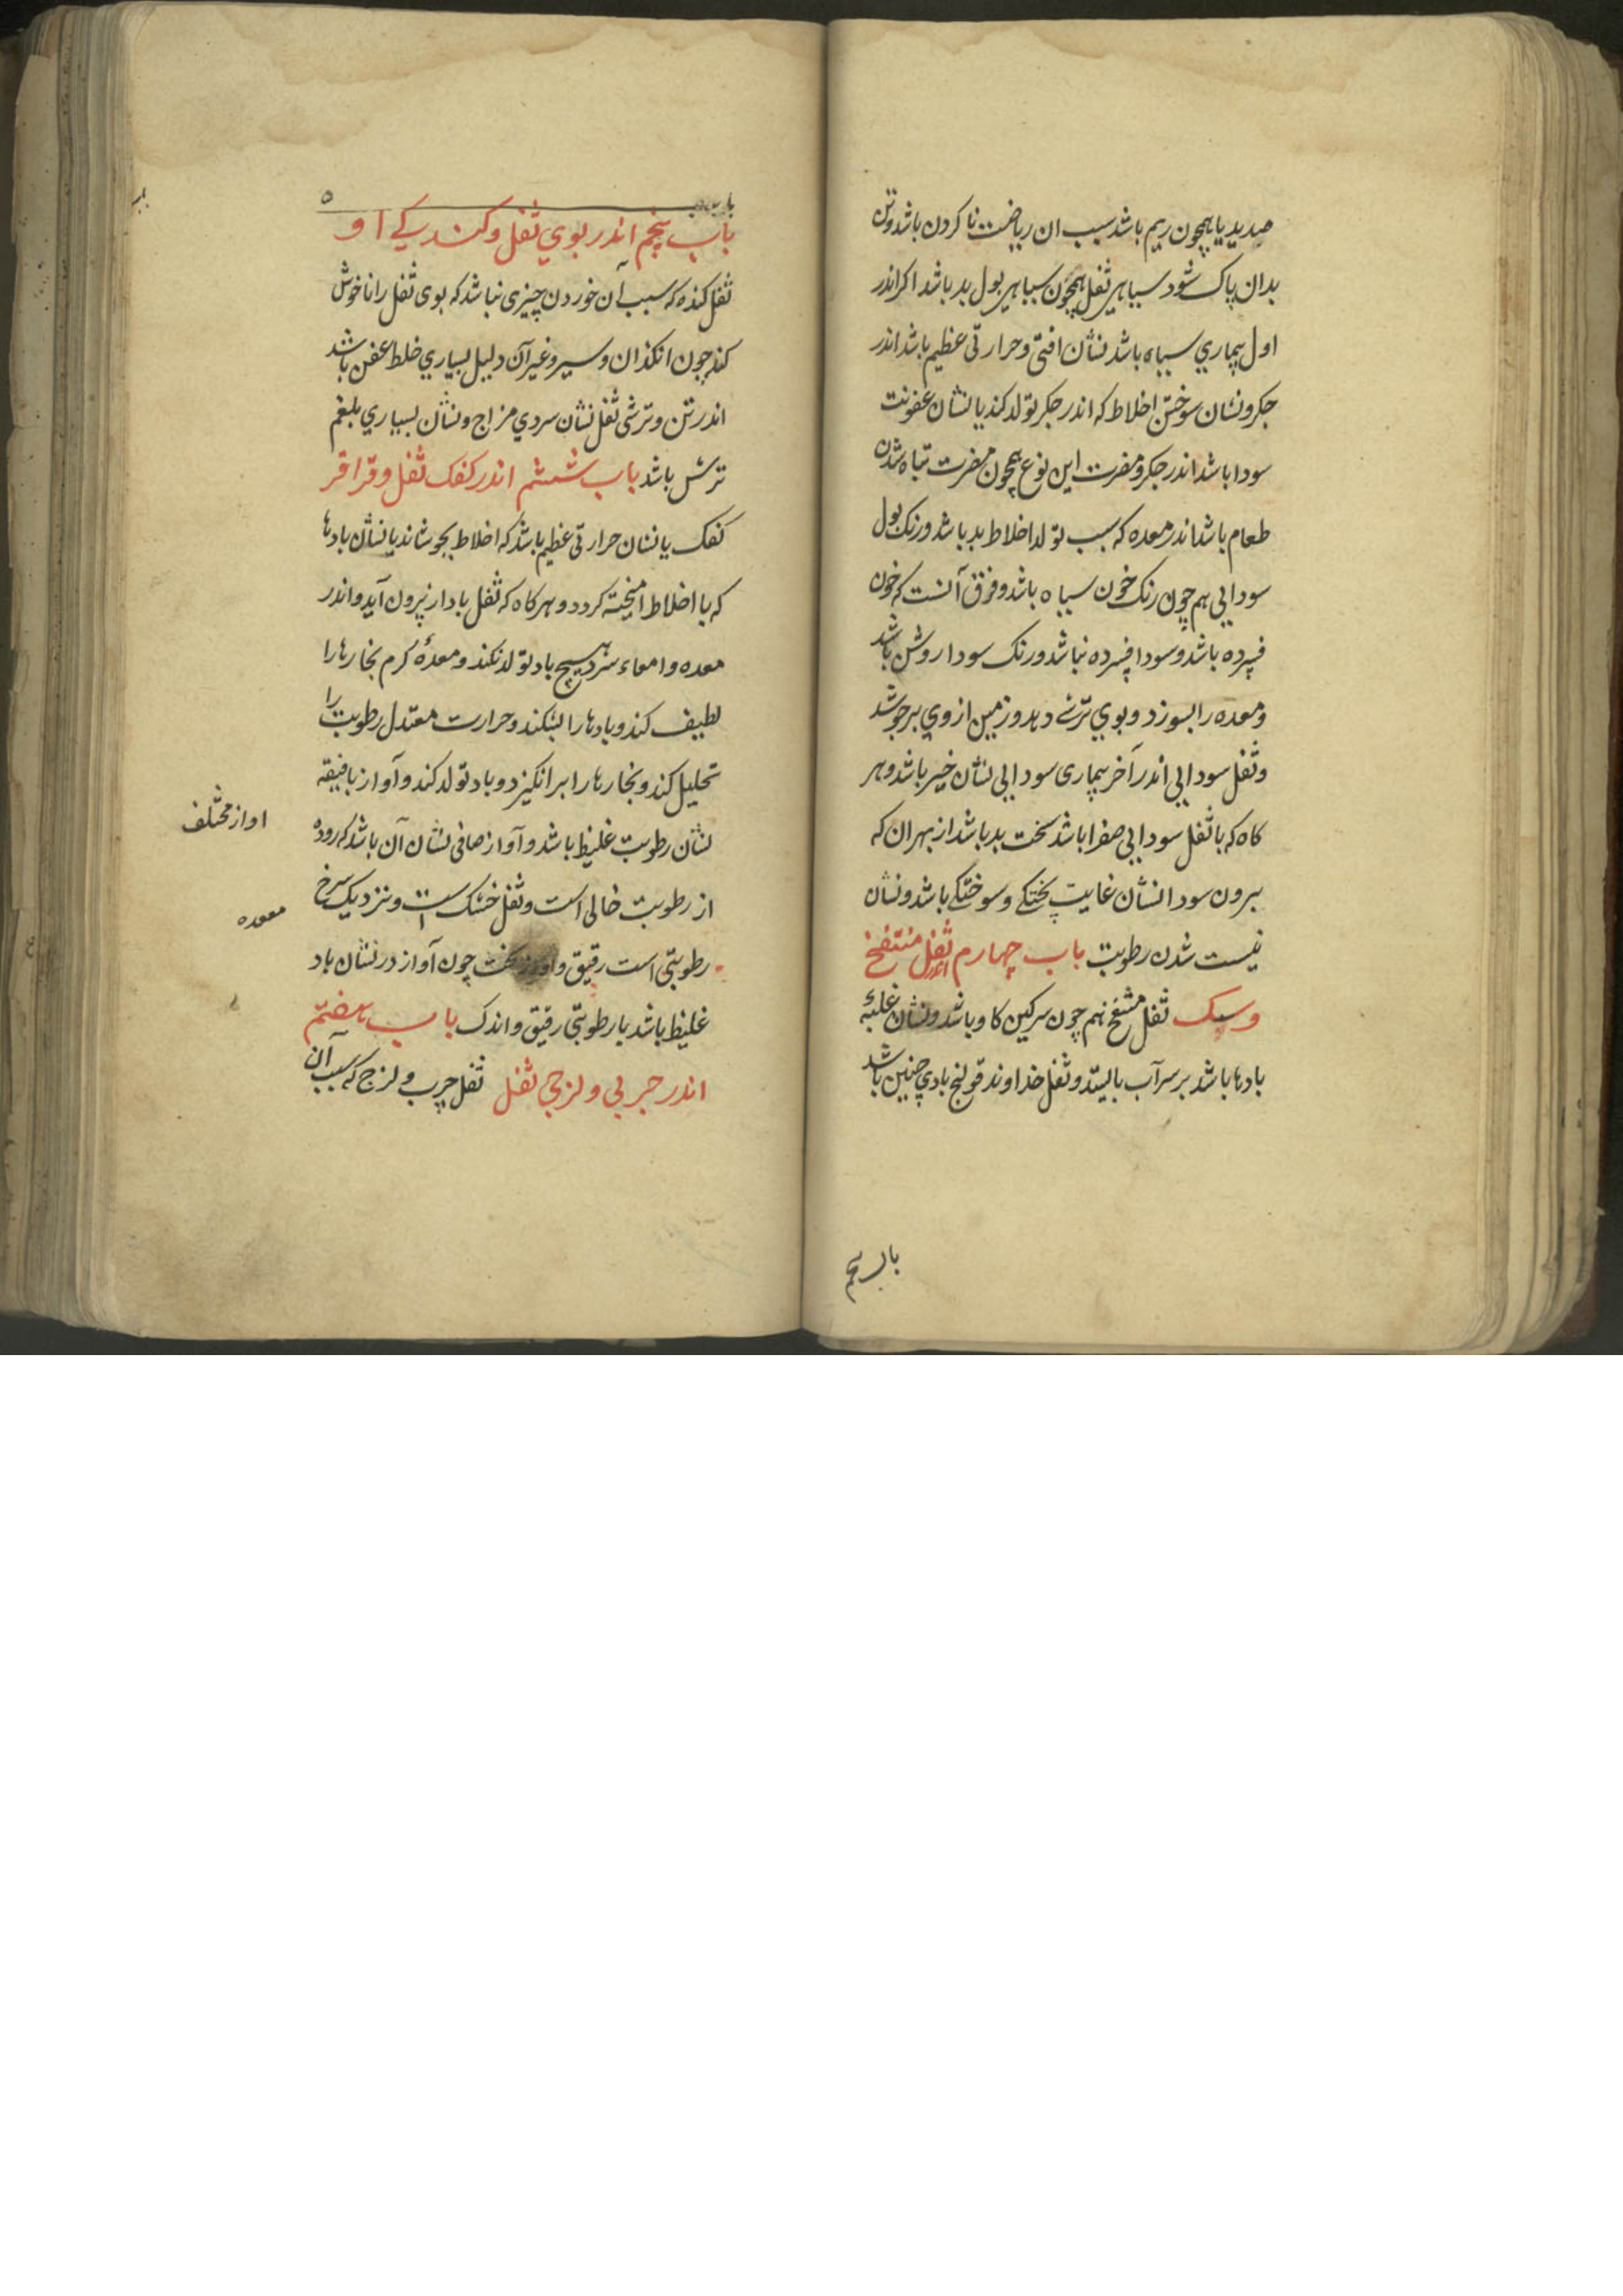 صدید یا همچون ریم باشد سبب ان ریاضت نا کردن باشد و تن
بدان پاک شود سیاهی ثفل همچون سیاهی بول بد باشد اکر اندر
اول بیماری سیاه باشد نشان افتی و حرارتی عظیم باشد اندر
جکر و نشان سوختن اخلاط که اندر جکر تولد کند یا نشان عفونت
سودا باشد اندر جکر و مضرت این نوع همچون مضرت تباه شدن
طعام باشد اندر معده که سبب تولد اخلاط بد باشد و رنک بول
سودایی هم چون رنک خون سیاه باشد و فرق آنست که خون
فسرده باشد و سودا فسرده نباشد و رنک سودا روشن باشد
و معده را بسوزد و بوی ترشی دهد و زمین از وی بر جوشد
و ثفل سودایی اندر آخر بیماری سودایی نشان خیر باشد و هر
کاه که با ثفل سودایی صفرا باشد سخت بد باشد از بهر ان که
بیرون سودا نشان غایت پختکی و سوختکی باشد و نشان
نیست شدن رطوبت باب چهارم اندر ثفل منتفخ
و سبک ثفل منتفخ هم چون سرکین کاو باشد و نشان غلبهٔ
بادها باشد بر سر آب بایستد و ثفل خداوند قولنج بادی چنین باشد
باب پنجم
۵
باب پنجم اندر بوی ثفل و کندیکی او
ثفل کنده که سبب آن خوردن چیزی نباشد که بوی ثفل را ناخوش
کند چون انکذان و سیر و غیر آن دلیل بسیاری خلط عفن باشد
اندر تن و ترشی ثفل نشان سردی مزاج و نشان بسیاری بلغم
ترش باشد باب ششم اندر کفک ثفل و قراقر
کفک یا نشان حرارتی عظیم باشد که اخلاط بجوشاند یا نشان بادها
که با اخلاط امیخته کردد و هر کاه که ثفل بادار بیرون آید و اندر
معده و امعاء سرد هیچ باد تولد نکند و معدهٔ کرم بخارها را
لطیف کند و بادها را بشکند و حرارت معتدل رطوبت را
تحلیل کند و بخارها را بر انکیزد و باد تولد کند و آواز با فیقه
نشان رطوبت غلیظ باشد و آواز صافی نشان آن باشد که روده
از رطوبت خالی است و ثفل خشک است و نزدیک سرخ
رطوبتی است رقیق و چون آواز در نشان باد
غلیظ باشد یا رطوبتی رقیق و اندک باب هفتم
اندر چربی و لزجی ثفل ثفل چرب و لزج که سبب آن
اواز مختلف
معده